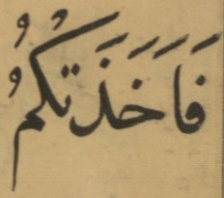 فَاَخَذَتْكُمُ